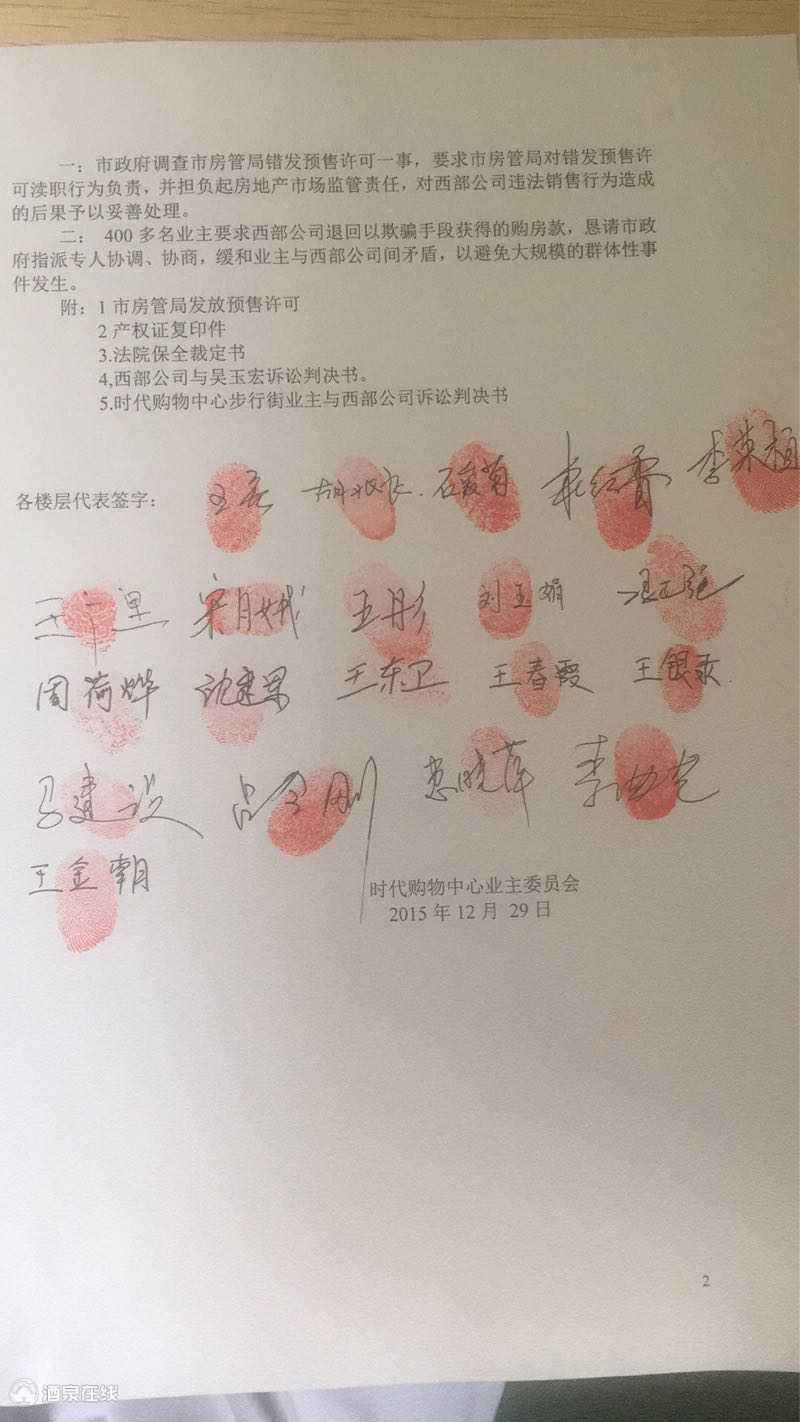 一：市政府调查市房管局错发预售许可一事，要求市房管局对错发预售许
可渎职行为负责，并担负起房地产市场监管责任，对西部公司违法销售行为造成
的后果予以妥善处理。
二： 400 多名业主要求西部公司退回以欺骗手段获得的购房款，恳请市政
府指派专人协调、协商，缓和业主与西部公司间矛盾，以避免大规模的群体性事
件发生。
附：1 市房管局发放预售许可
2 产权证复印件
3.法院保全裁定书
4,西部公司与吴玉宏诉讼判决书。
5.时代购物中心步行街业主与西部公司诉讼判决书
各楼层代表签字：
宋月娥 王彤 刘玉娟
周荷烨 沈建军 王东卫 王春霞 王银
马建议 吕金刚 惠晓萍 李
王金朝
时代购物中心业主委员会
2015 年 12 月 29 日
2
酒泉在线